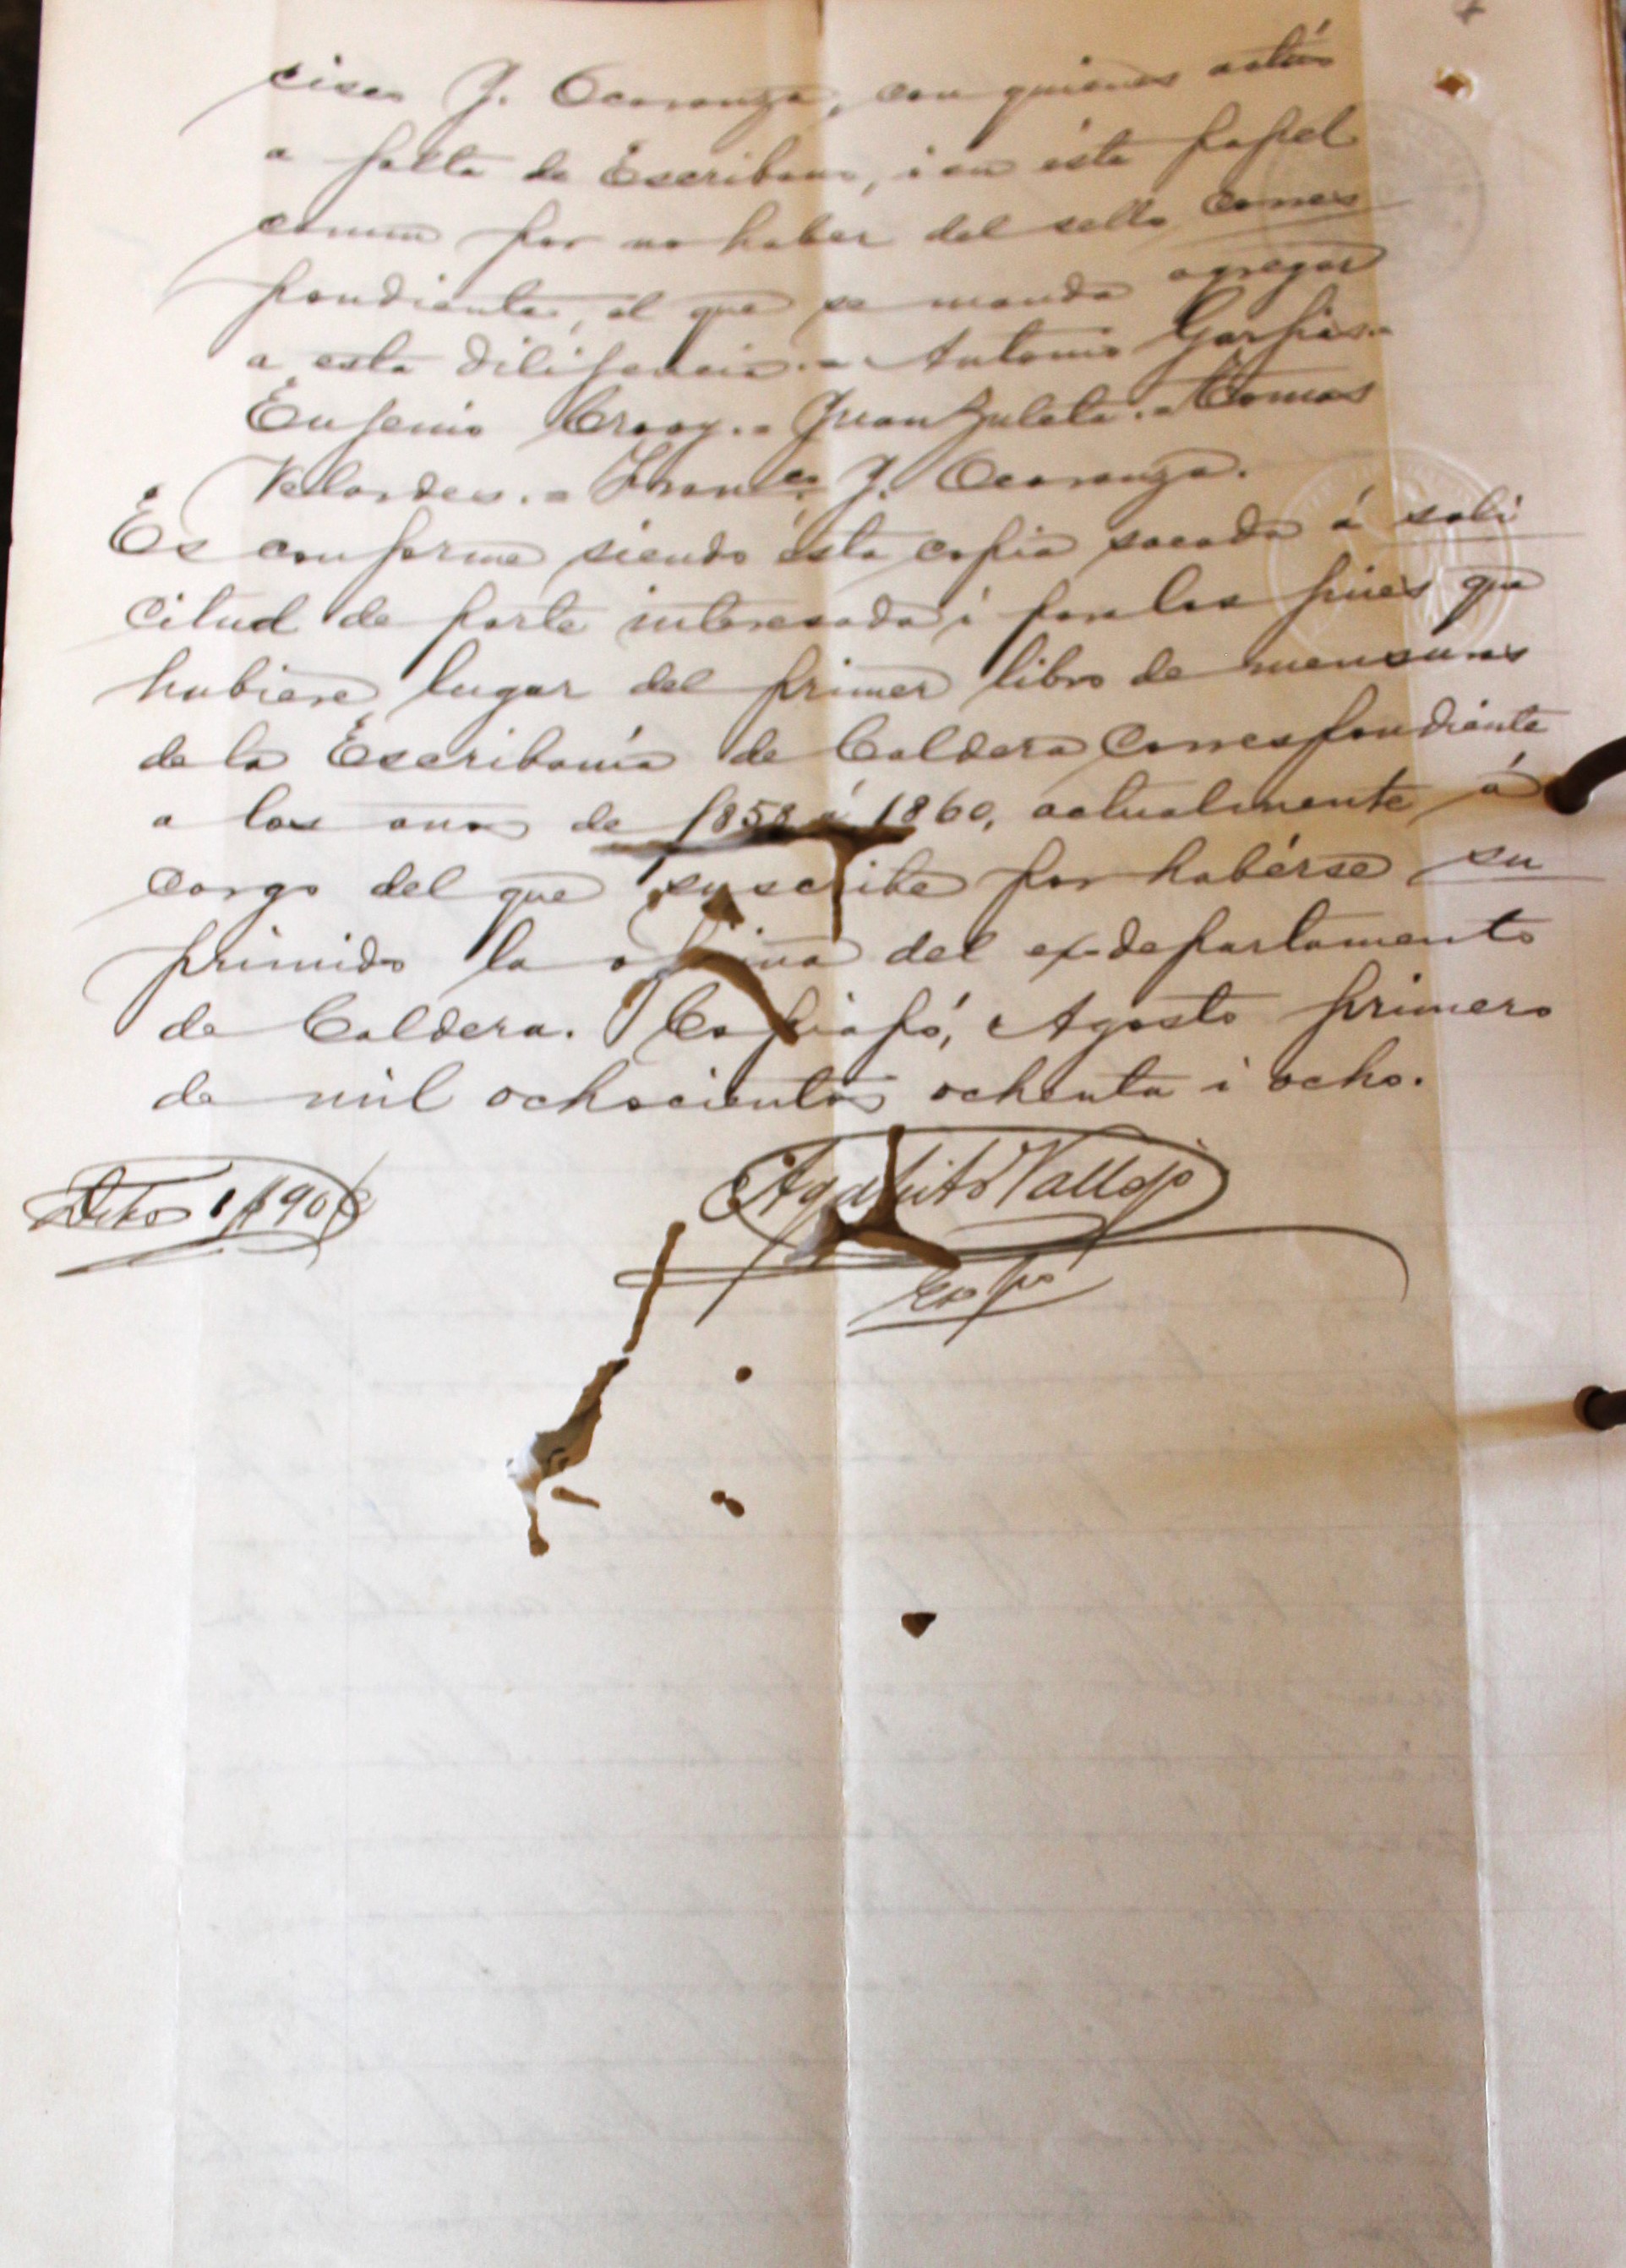 cisco J. Ocaranza, con quienes actúo
a falta de Escribano, i en ésta papel
comun por no haber del sello corres
pondiente, el que se manda agregar
a esta dilijencia.= Antonio Garfias.=
Eujenio Croay.= Juan Zuleta.= Tomas
Velardes.= Franco. J. Ocaranza.
Es conforme siendo ésta copia sacada á soli
citud de parte interesada i para los fines que
hubiere lugar del primer libro de mensuras
de la Escribanía de Caldera correspondiente
a los anos de 1858 á 1860, actualmente á
cargo del que suscribe por habérse su
primido la oficina del ex-departamento
de Caldera. Copiapó, Agosto primero
de mil ochocientos ochenta i ocho.
Agapito Vallejo